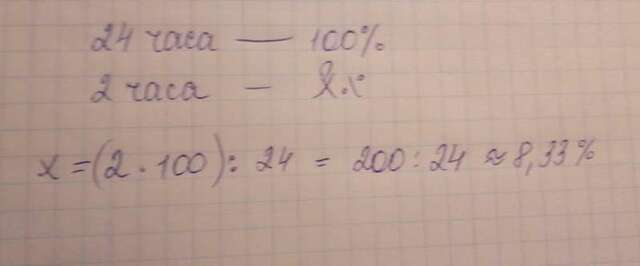 24 часа — 100%
2 часа — x
x = (2 · 100) : 24 = 200 : 24 ≈ 8,33%